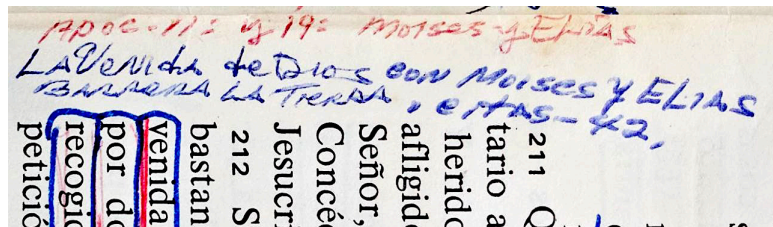 Apoc-11: y 19: Moises-y Elías
LA Venida de Dios con Moises y ELIAS
BARRERA LA TIERRA,
211 Q
tario a
herido
afligido
Señor,
Concéd
Jesucri
212 S
bastan
venida
por do
recogid
petició